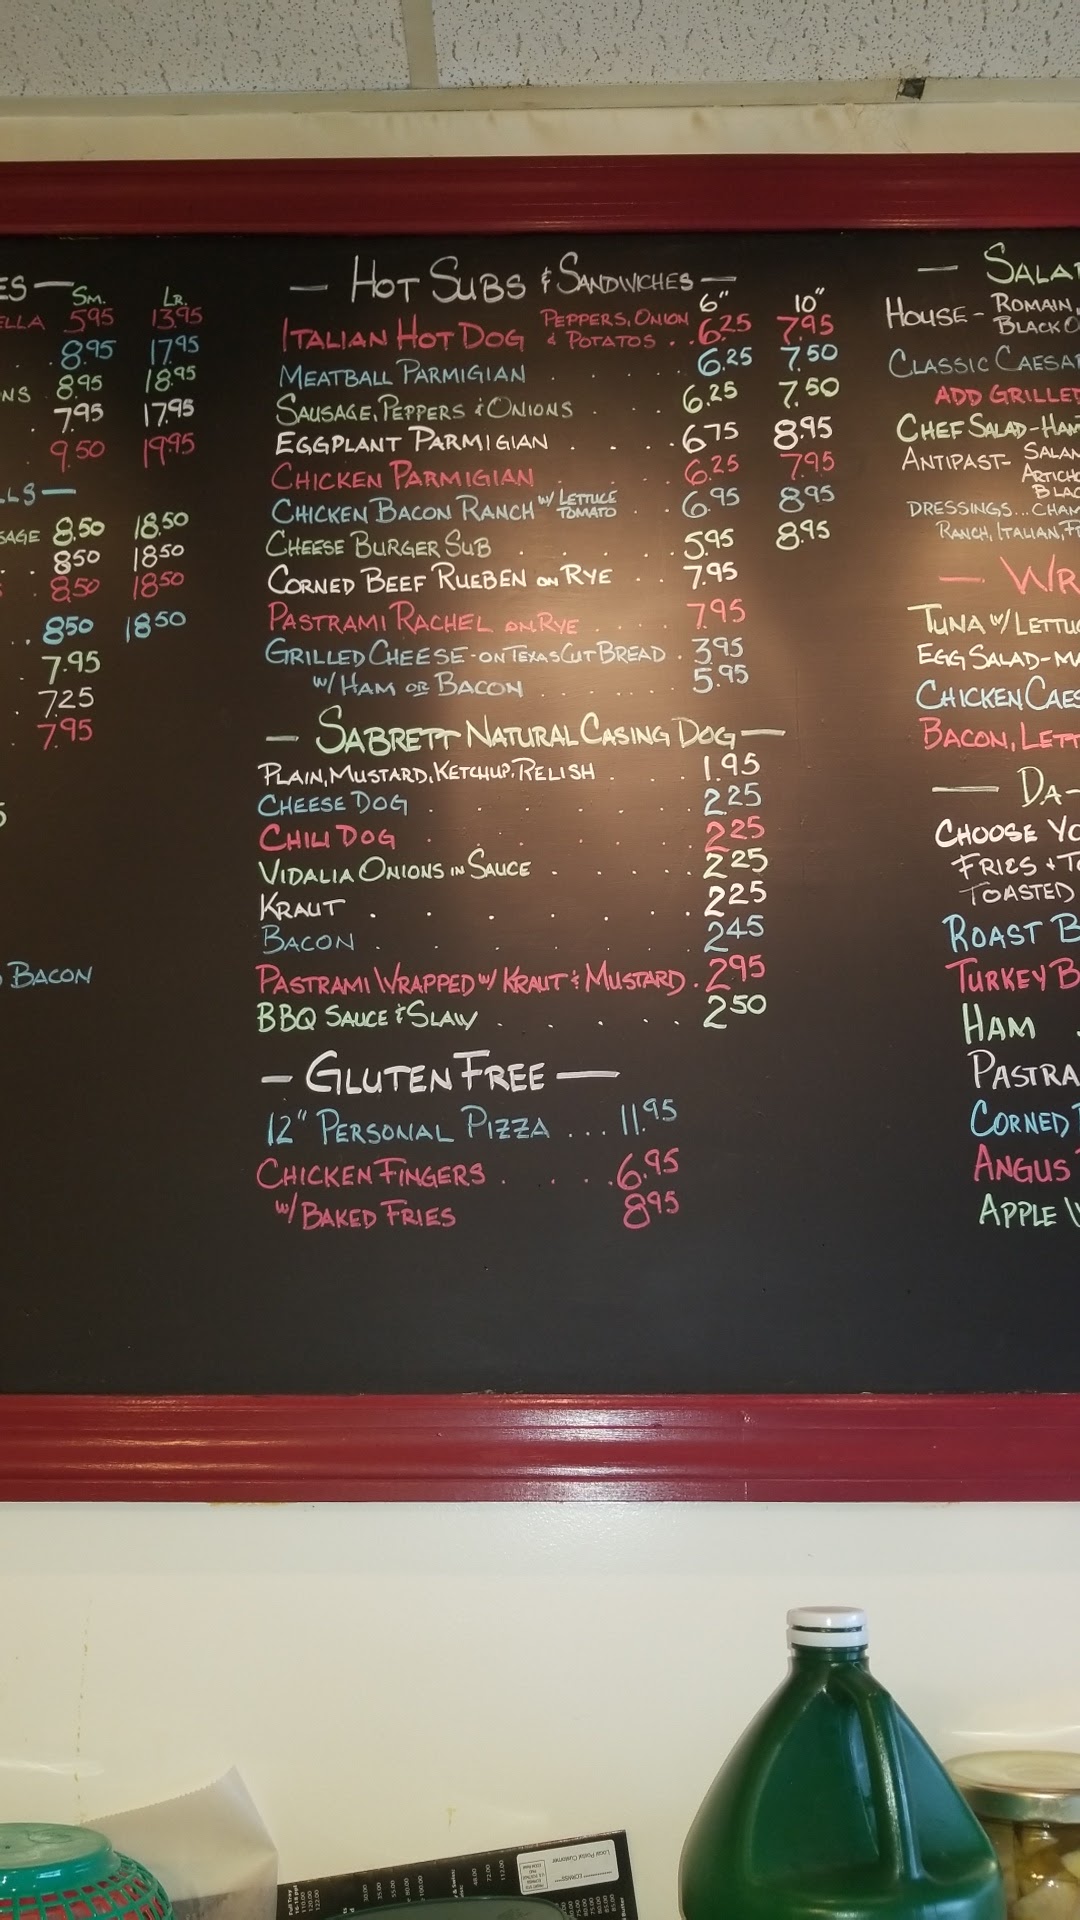 ES —
Sm. Lr.
ELLA 5.95 13.95
. 8.95 17.95
NS . 8.95 18.95
. 7.95 17.95
. 9.50 19.95
LLS —
SAGE 8.50 18.50
. . 8.50 18.50
. 8.50 18.50
. . 8.50 18.50
. 7.95
. 7.25
. 7.95
BACON
— HOT SUBS & SANDWICHES —
6" 10"
ITALIAN HOT DOG PEPPERS, ONION & POTATOS . . 6.25 7.95
MEATBALL PARMIGIAN . . . . 6.25 7.50
SAUSAGE, PEPPERS & ONIONS . . . . 6.25 7.50
EGGPLANT PARMIGIAN . . . 6.75 8.95
CHICKEN PARMIGIAN . . . . 6.25 7.95
CHICKEN BACON RANCH W/ LETTUCE TOMATO . . 6.95 8.95
CHEESE BURGER SUB . . . . . 5.95 8.95
CORNED BEEF RUEBEN ON RYE . . 7.95
PASTRAMI RACHEL ON RYE . . . . 7.95
GRILLED CHEESE - ON TEXAS CUT BREAD . 3.95
W/ HAM OR BACON . . . . . . 5.95
— SABRETT NATURAL CASING DOG —
PLAIN, MUSTARD, KETCHUP, RELISH . . . . 1.95
CHEESE DOG . . . . . . . 2.25
CHILI DOG . . . . . . . 2.25
VIDALIA ONIONS IN SAUCE . . . . . 2.25
KRAUT . . . . . . . . 2.25
BACON . . . . . . . . 2.45
PASTRAMI WRAPPED W/ KRAUT & MUSTARD . 2.95
BBQ SAUCE & SLAW . . . . . . 2.50
— GLUTEN FREE —
12" PERSONAL PIZZA . . . 11.95
CHICKEN FINGERS . . . . . 6.95
W/ BAKED FRIES 8.95
— SALA
HOUSE - ROMAIN,
BLACK O
CLASSIC CAESA
ADD GRILLED
CHEF SALAD - HAM
ANTIPAST - SALAM
ARTICHO
BLAC
DRESSINGS... CHAM
RANCH, ITALIAN, F
— WR
TUNA W/ LETTUC
EGG SALAD - MA
CHICKEN CAES
BACON, LETT
— DA-
CHOOSE YO
FRIES + TO
TOASTED
ROAST B
TURKEY B
HAM
PASTRA
CORNED
ANGUS
APPLE
Local Postal Customer